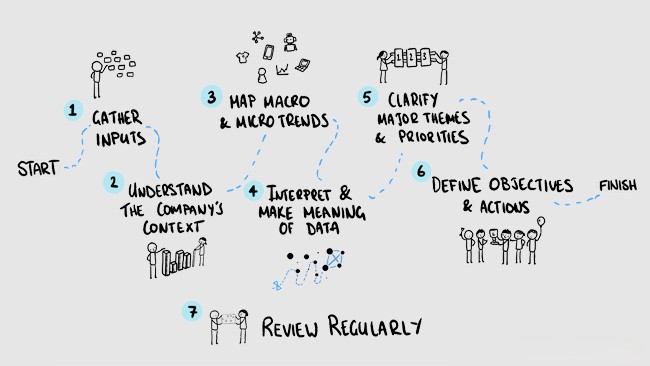 START
1
GATHER
INPUTS
2
UNDERSTAND
THE COMPANY'S
CONTEXT
3
MAP MACRO
& MICRO TRENDS
4
INTERPRET &
MAKE MEANING
OF DATA
5
CLARIFY
MAJOR THEMES
& PRIORITIES
1 2 3
6
DEFINE OBJECTIVES
& ACTIONS
FINISH
7
REVIEW REGULARLY